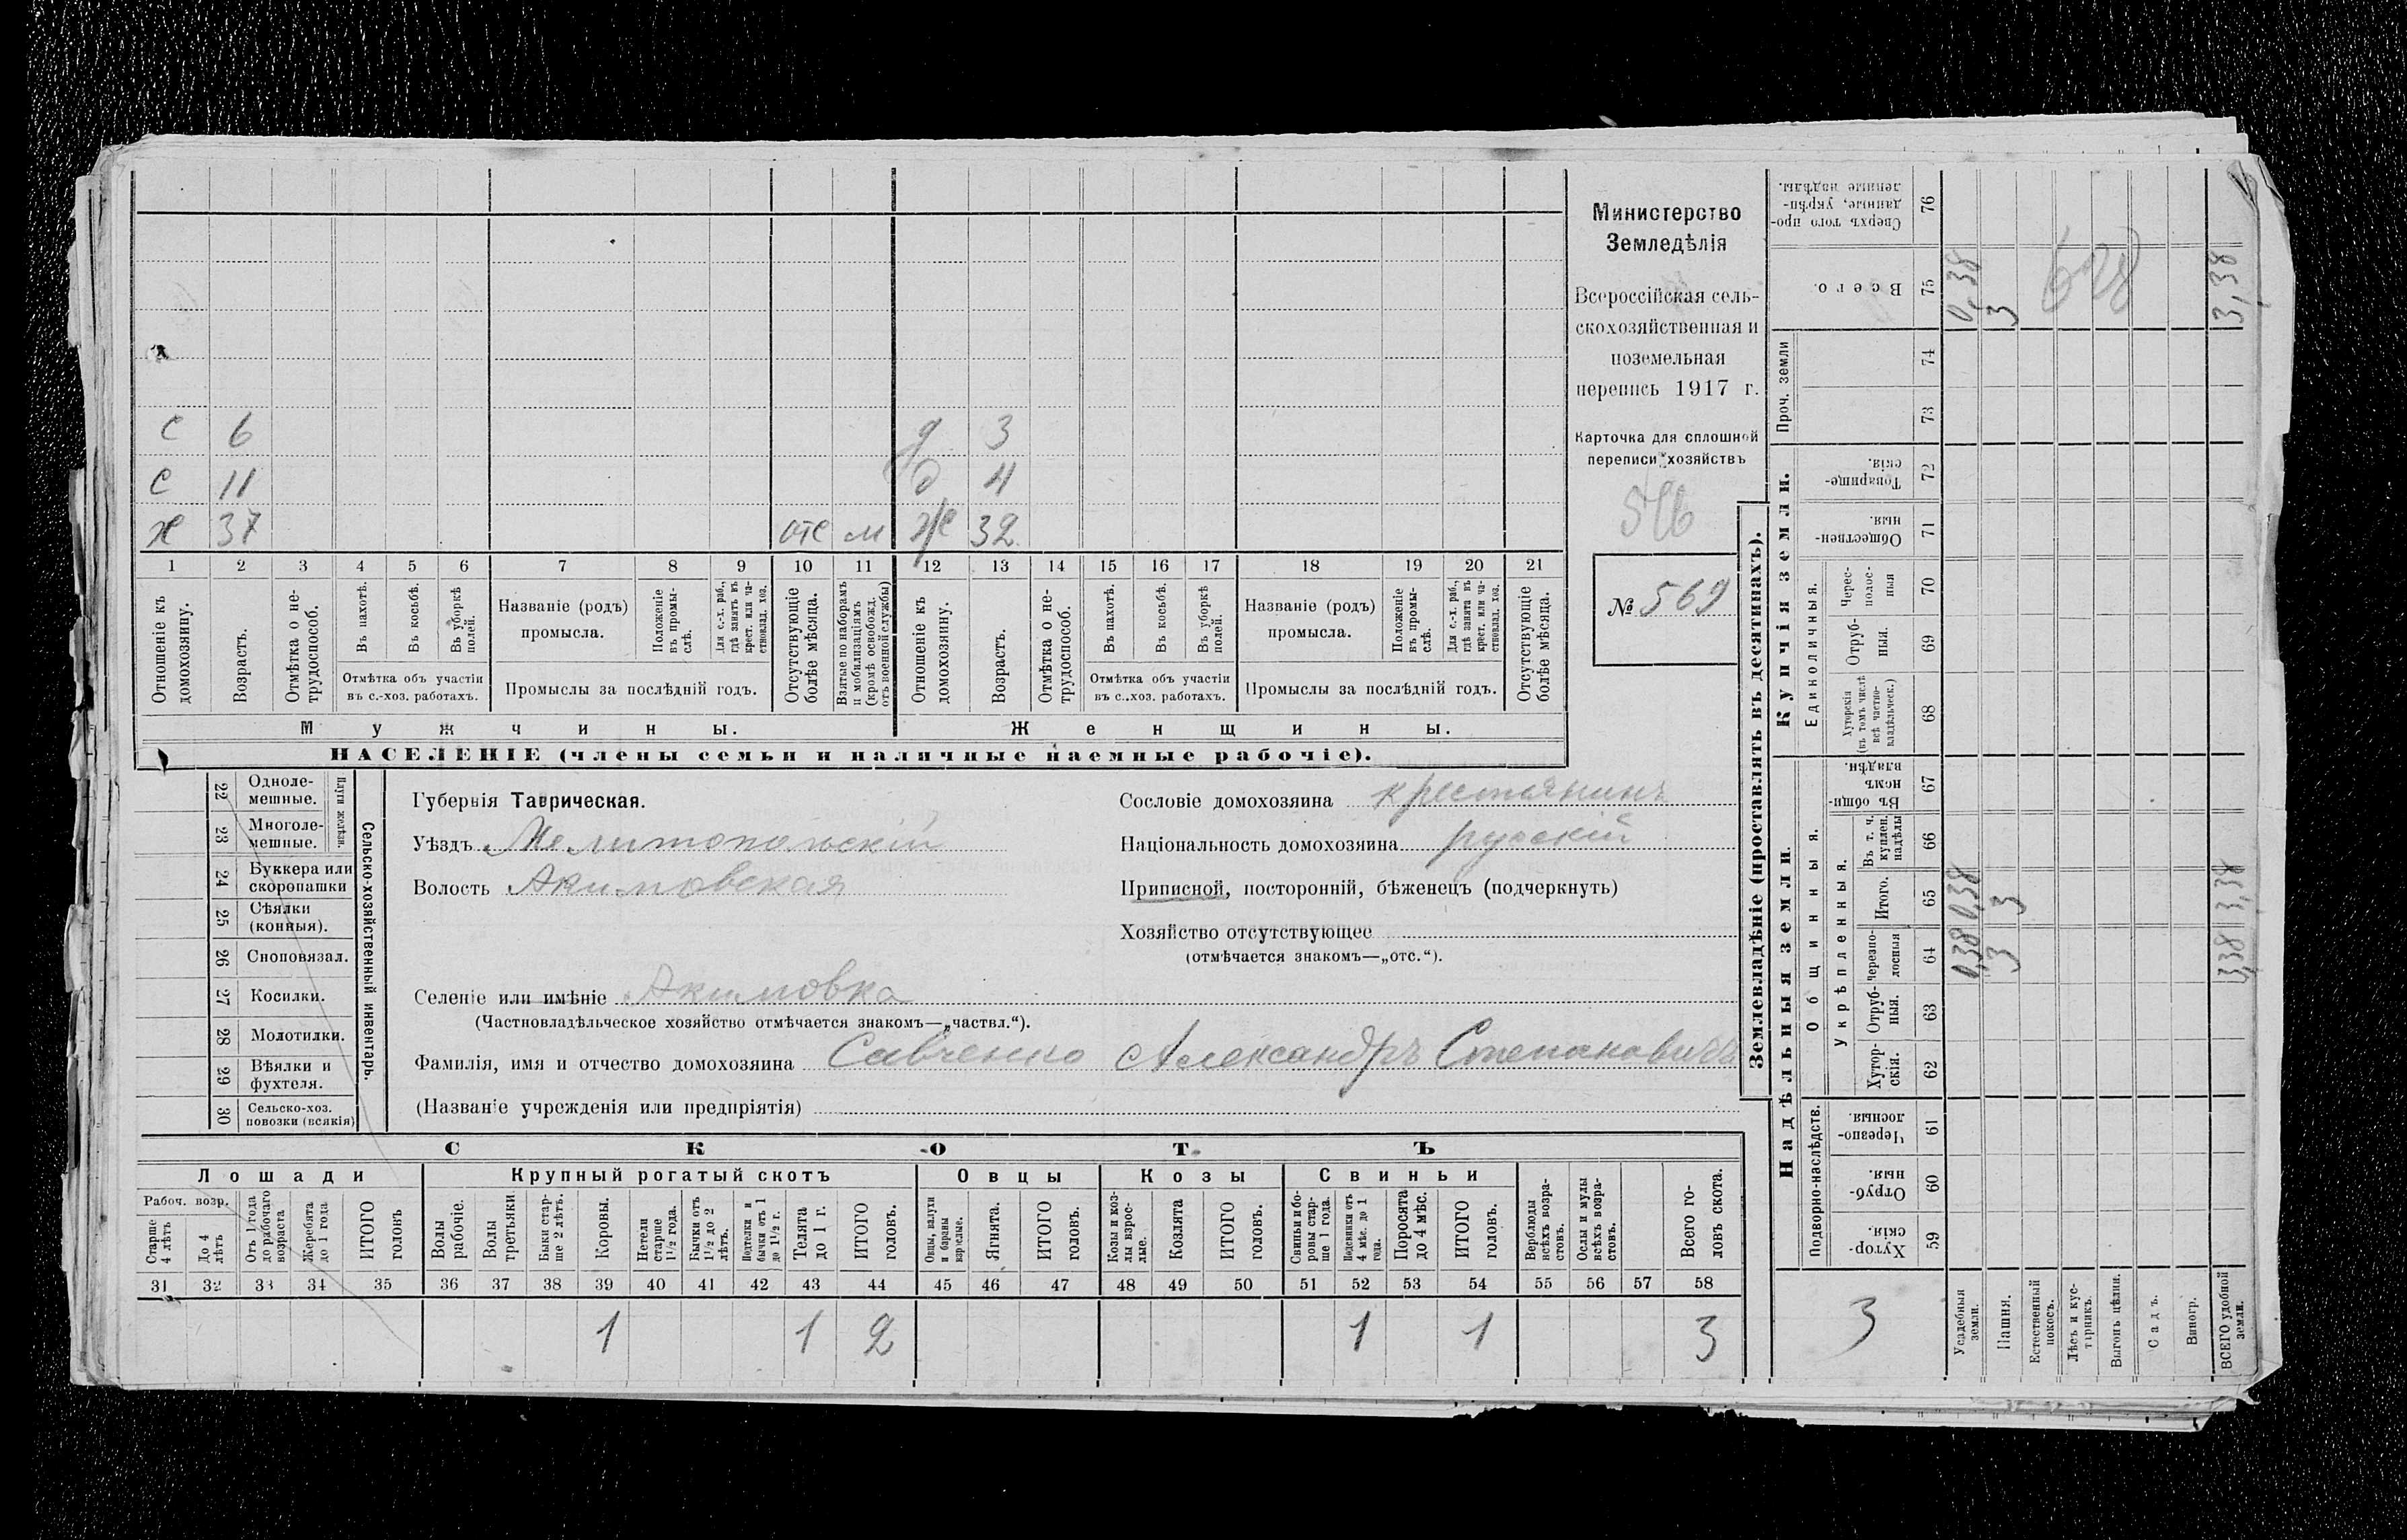 С 6 д 3
С 11 д 4
Х 37 отс м ж 32
1 2 3 4 5 6 7 8 9 10 11 12 13 14 15 16 17 18 19 20 21
Отношеніе къ домохозяину.
Возрастъ.
Отмѣтка о нетрудоспособ.
Въ пахотѣ.
Въ косьбѣ.
Въ уборкѣ полей.
Отмѣтка объ участіи
въ с.-хоз. работахъ.
Названіе (родъ)
промысла.
Положеніе въ промыслѣ.
Для с.-х. раб., гдѣ занятъ въ крест. или частновлад. хоз.
Промыслы за послѣдній годъ.
Отсутствующіе болѣе мѣсяца.
Взятые по наборамъ и мобилизаціямъ (кромѣ освобожд. отъ военной службы)
Отношеніе къ домохозяину.
Возрастъ.
Отмѣтка о нетрудоспособ.
Въ пахотѣ.
Въ косьбѣ.
Въ уборкѣ полей.
Отмѣтка объ участіи
въ с.-хоз. работахъ.
Названіе (родъ)
промысла.
Положеніе въ промыслѣ.
Для с.-х. раб., гдѣ занята въ крест. или частновлад. хоз.
Промыслы за послѣдній годъ.
Отсутствующіе болѣе мѣсяца.
Мужчины. Женщины.
НАСЕЛЕНІЕ (члены семьи и наличные наемные рабочіе).
Министерство
Земледѣлія
Всероссійская сель-
скохозяйственная и
поземельная
перепись 1917 г.
Карточка для сплошной
переписи хозяйствъ
516
№ 569
22 Одноле-
мешные.
23 Многоле-
мешные.
Плуги желѣзн.
24 Буккера или
скоропашки
25 Сѣялки
(конныя).
26 Сноповязал.
27 Косилки.
28 Молотилки.
29 Вѣялки и
фухтеля.
30 Сельско-хоз.
повозки (всякія)
Сельско-хозяйственный инвентарь.
Губернія Таврическая.
Уѣздъ Мелитопольскій
Волость Акимовская
Селеніе или имѣніе Акимовка
(Частновладѣльческое хозяйство отмѣчается знакомъ—„частвл.“).
Фамилія, имя и отчество домохозяина Савченко Александръ Степановичъ
(Названіе учрежденія или предпріятія)
Сословіе домохозяина крестьянинъ
Національность домохозяина русскій
Приписной, посторонній, бѣженецъ (подчеркнуть)
Хозяйство отсутствующее
(отмѣчается знакомъ—„отс.“).
СКОТЪ
Лошади Крупный рогатый скотъ Овцы Козы Свиньи
Рабоч. возр.
Старше 4 лѣтъ
До 4 лѣтъ
Отъ 1 года до рабочаго возраста
Жеребята до 1 года
ИТОГО головъ
Волы рабочіе.
Волы третьяки
Быки старше 2 лѣтъ.
Коровы.
Нетели старше 1½ года.
Бычки отъ 1½ до 2 лѣтъ.
Подтелки и бычки отъ 1 до 1½ г.
Телята до 1 г.
ИТОГО головъ.
Овцы, валухи и бараны взрослые.
Ягнята.
ИТОГО головъ.
Козы и козлы взрослые.
Козлята
ИТОГО головъ.
Свиньи и боровы старше 1 года.
Подсвинки отъ 4 мѣс. до 1 года.
Поросята до 4 мѣс.
ИТОГО головъ.
Верблюды всѣхъ возрастовъ.
Ослы и мулы всѣхъ возрастовъ.
Всего головъ скота.
31 32 33 34 35 36 37 38 39 40 41 42 43 44 45 46 47 48 49 50 51 52 53 54 55 56 57 58
1 1 2 1 1 3
Землевладѣніе (проставлять въ десятинахъ).
Купчія земли.
Надѣльныя земли.
Проч. земли
Единоличныя.
Общинныя.
Укрѣпленныя.
Подворно-наслѣдств.
Сверхъ того проданные, укрѣпленные надѣлы. 76
Всего. 75 0,38 3 628 3,38
74
73
Товарищескія. 72
Общественныя. 71
Чересполосныя 70
Отрубныя. 69
Хуторскія (въ томъ числѣ всѣ частновладѣльческ.) 68
Въ общинномъ владѣн. 67
Въ т. ч. куплен. надѣлы 66
Итого. 65 0,38 3 3,38
Черезполосныя 64 0,38 3 3,38
Отрубныя. 63
Хуторскія. 62
Черезполосныя 61
Отрубныя. 60
Хуторскія. 59
3
Усадебныя земли.
Пашня.
Естественный покосъ.
Лѣсъ и кустарникъ.
Выгонъ цѣлин.
Садъ.
Виногр.
ВСЕГО удобной земли.